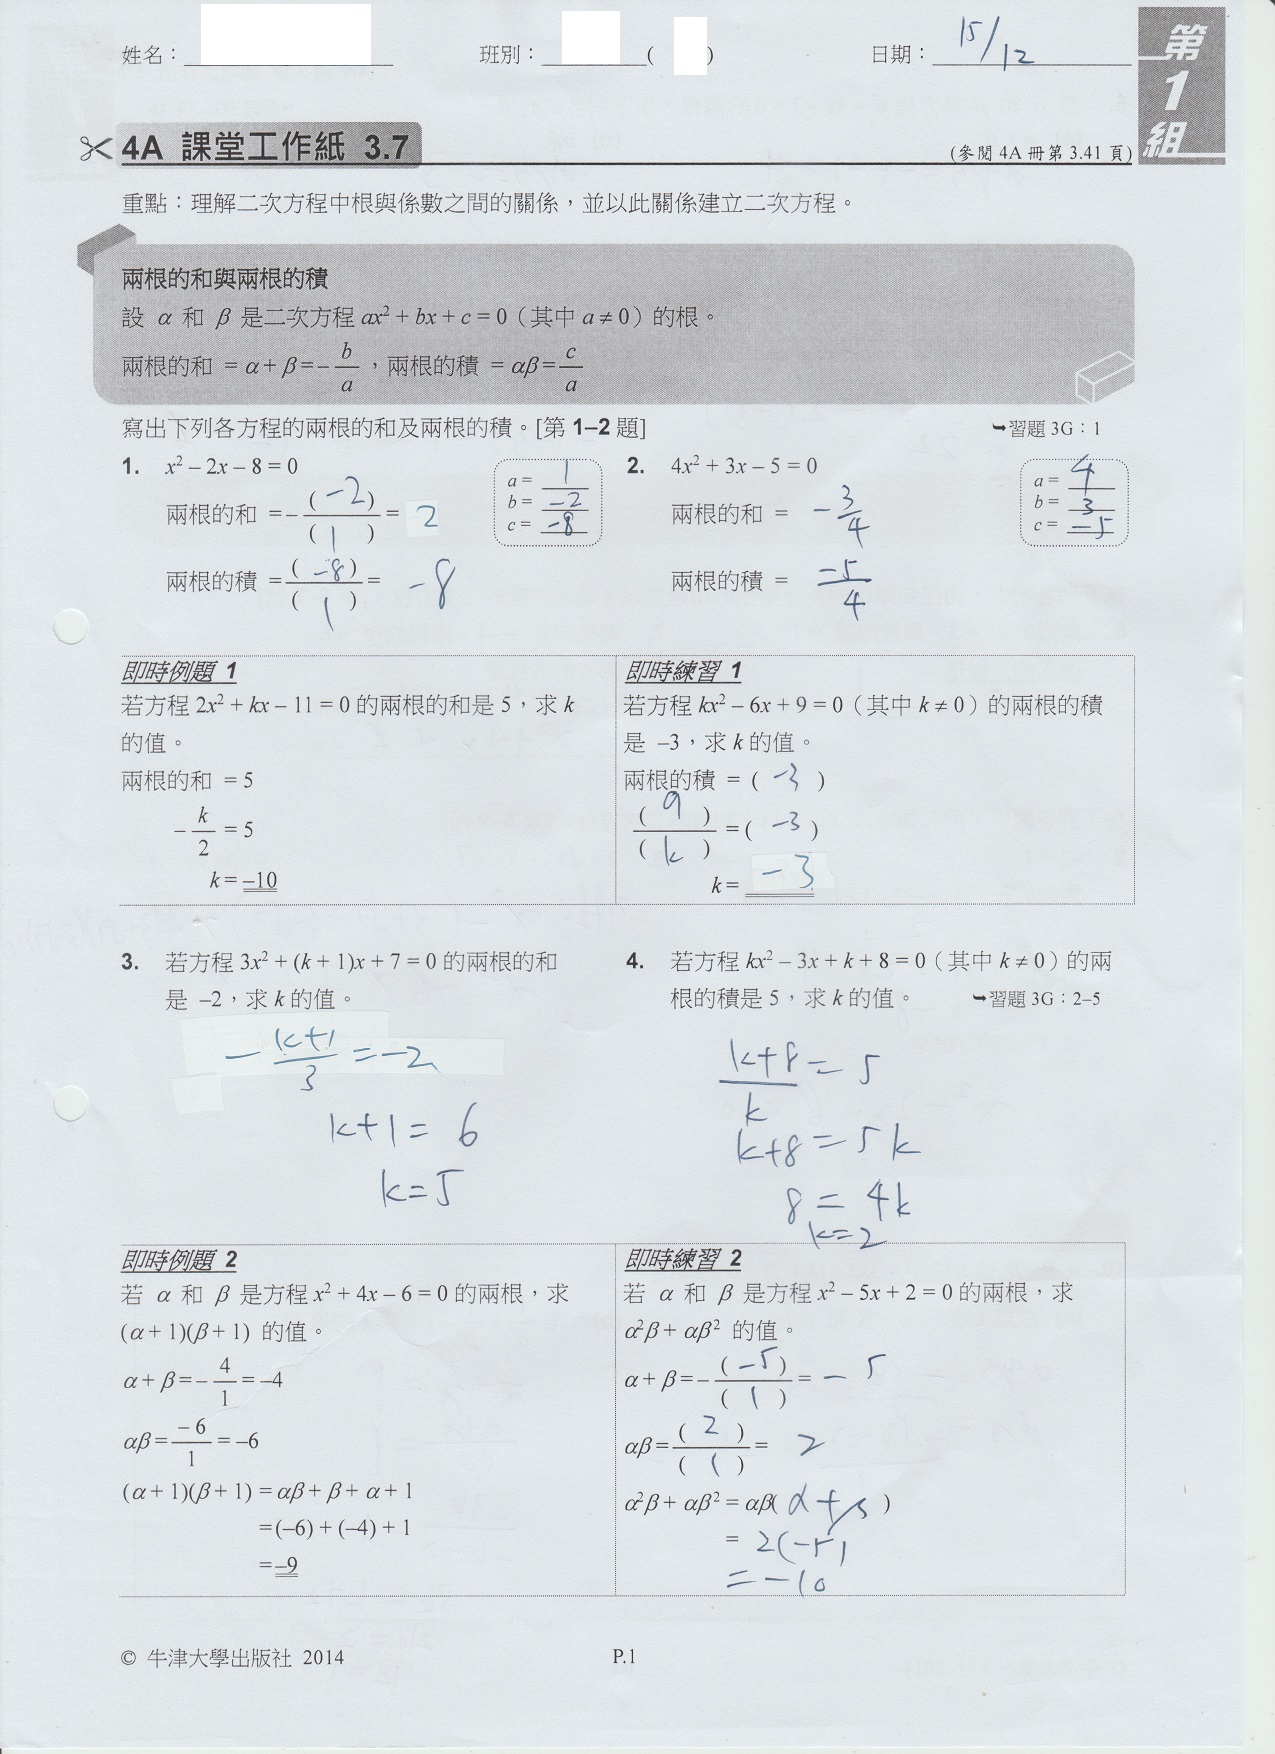 姓名： 班別： ( ) 日期：15/12
第1組
4A 課堂工作紙 3.7
(參閱 4A 冊第 3.41 頁)
重點：理解二次方程中根與係數之間的關係，並以此關係建立二次方程。
兩根的和與兩根的積
設 α 和 β 是二次方程 ax² + bx + c = 0（其中 a ≠ 0）的根。
兩根的和 = α + β = –b/a，兩根的積 = αβ = c/a
寫出下列各方程的兩根的和及兩根的積。[第 1–2 題] ➥習題 3G：1
1. x² – 2x – 8 = 0
a = 1
b = -2
c = -8
兩根的和 = –(-2)/(1) = 2
兩根的積 = (-8)/(1) = -8
2. 4x² + 3x – 5 = 0
a = 4
b = 3
c = -5
兩根的和 = -3/4
兩根的積 = -5/4
即時例題 1
若方程 2x² + kx – 11 = 0 的兩根的和是 5，求 k
的值。
兩根的和 = 5
–k/2 = 5
k = –10
即時練習 1
若方程 kx² – 6x + 9 = 0（其中 k ≠ 0）的兩根的積
是 –3，求 k 的值。
兩根的積 = ( -3 )
(9)/(k) = ( -3 )
k = -3
3. 若方程 3x² + (k + 1)x + 7 = 0 的兩根的和
是 –2，求 k 的值。
-(k+1)/3 = -2
k+1 = 6
k=5
4. 若方程 kx² – 3x + k + 8 = 0（其中 k ≠ 0）的兩
根的積是 5，求 k 的值。 ➥習題 3G：2–5
(k+8)/k = 5
k+8 = 5k
8 = 4k
k=2
即時例題 2
若 α 和 β 是方程 x² + 4x – 6 = 0 的兩根，求
(α + 1)(β + 1) 的值。
α + β = –4/1 = –4
αβ = –6/1 = –6
(α + 1)(β + 1) = αβ + β + α + 1
= (–6) + (–4) + 1
= –9
即時練習 2
若 α 和 β 是方程 x² – 5x + 2 = 0 的兩根，求
α²β + αβ² 的值。
α + β = –(-5)/(1) = -5
αβ = (2)/(1) = 2
α²β + αβ² = αβ( α+β )
= 2(-5)
= -10
© 牛津大學出版社 2014
P.1